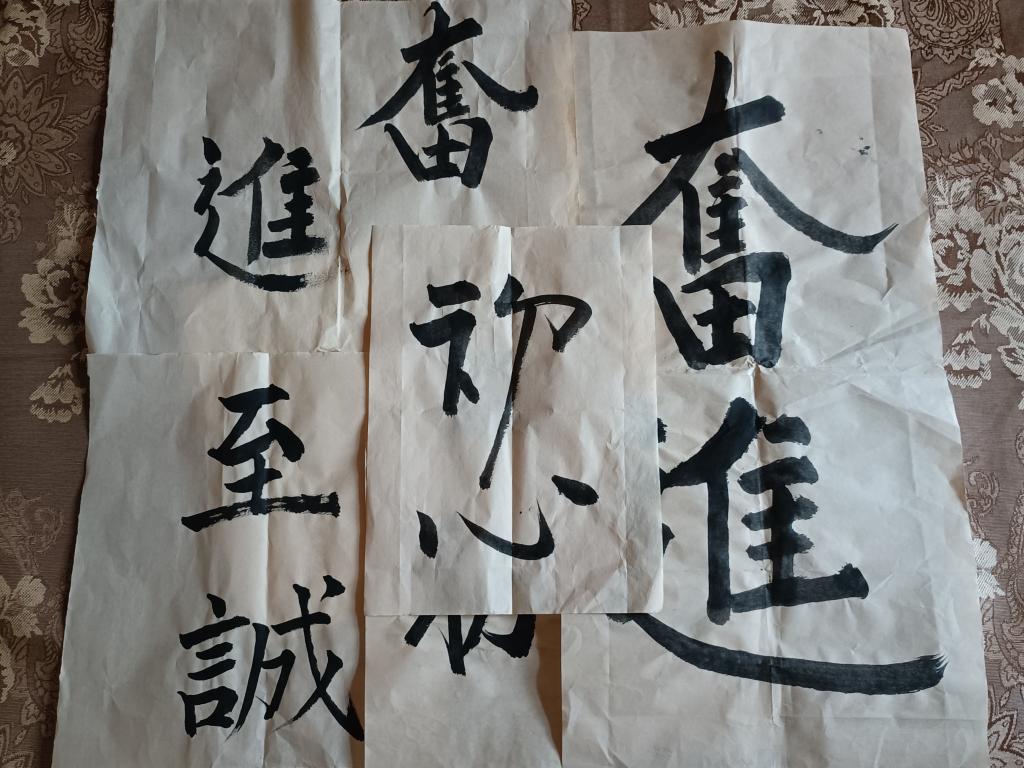 奮進
奮
進
初心
至誠